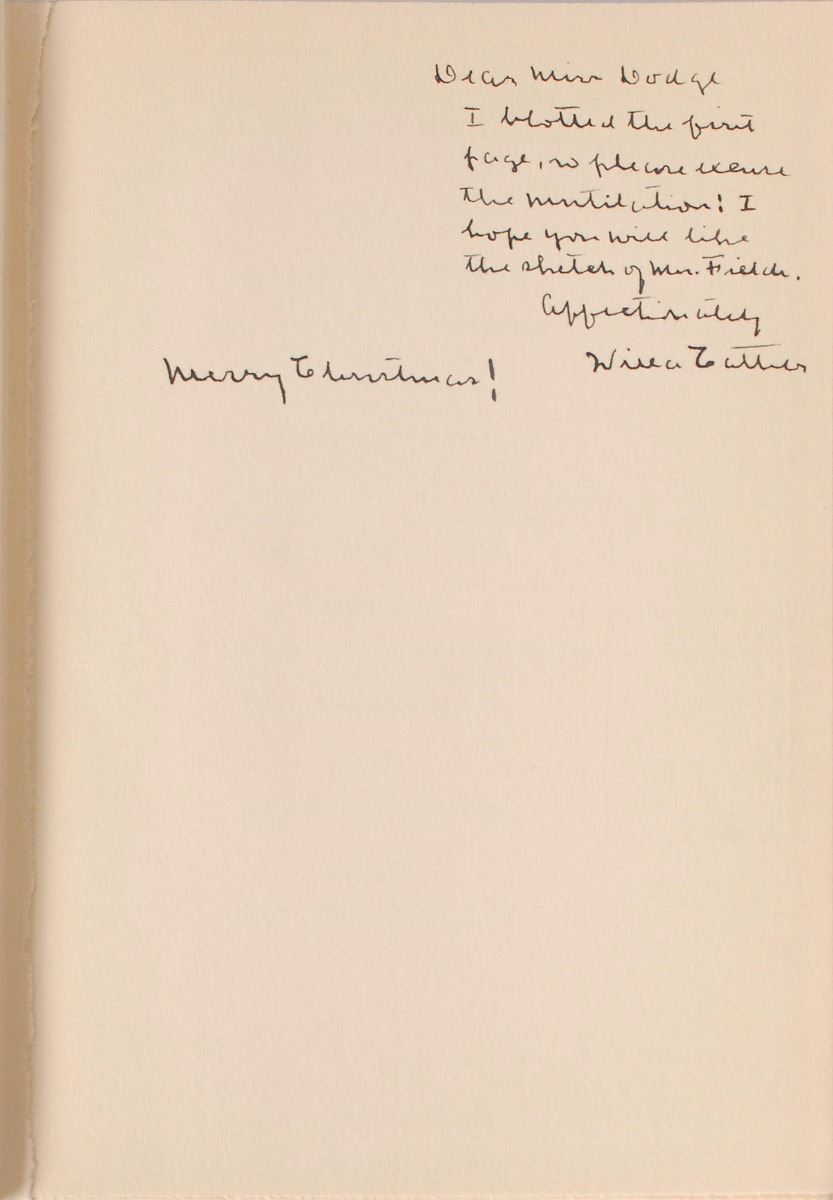 Dear Miss Dodge
I blotted the first
page, so please excuse
the mutilation! I
hope you will like
the sketch of Mrs. Fields.
Affectionately
Willa Cather
Merry Christmas!